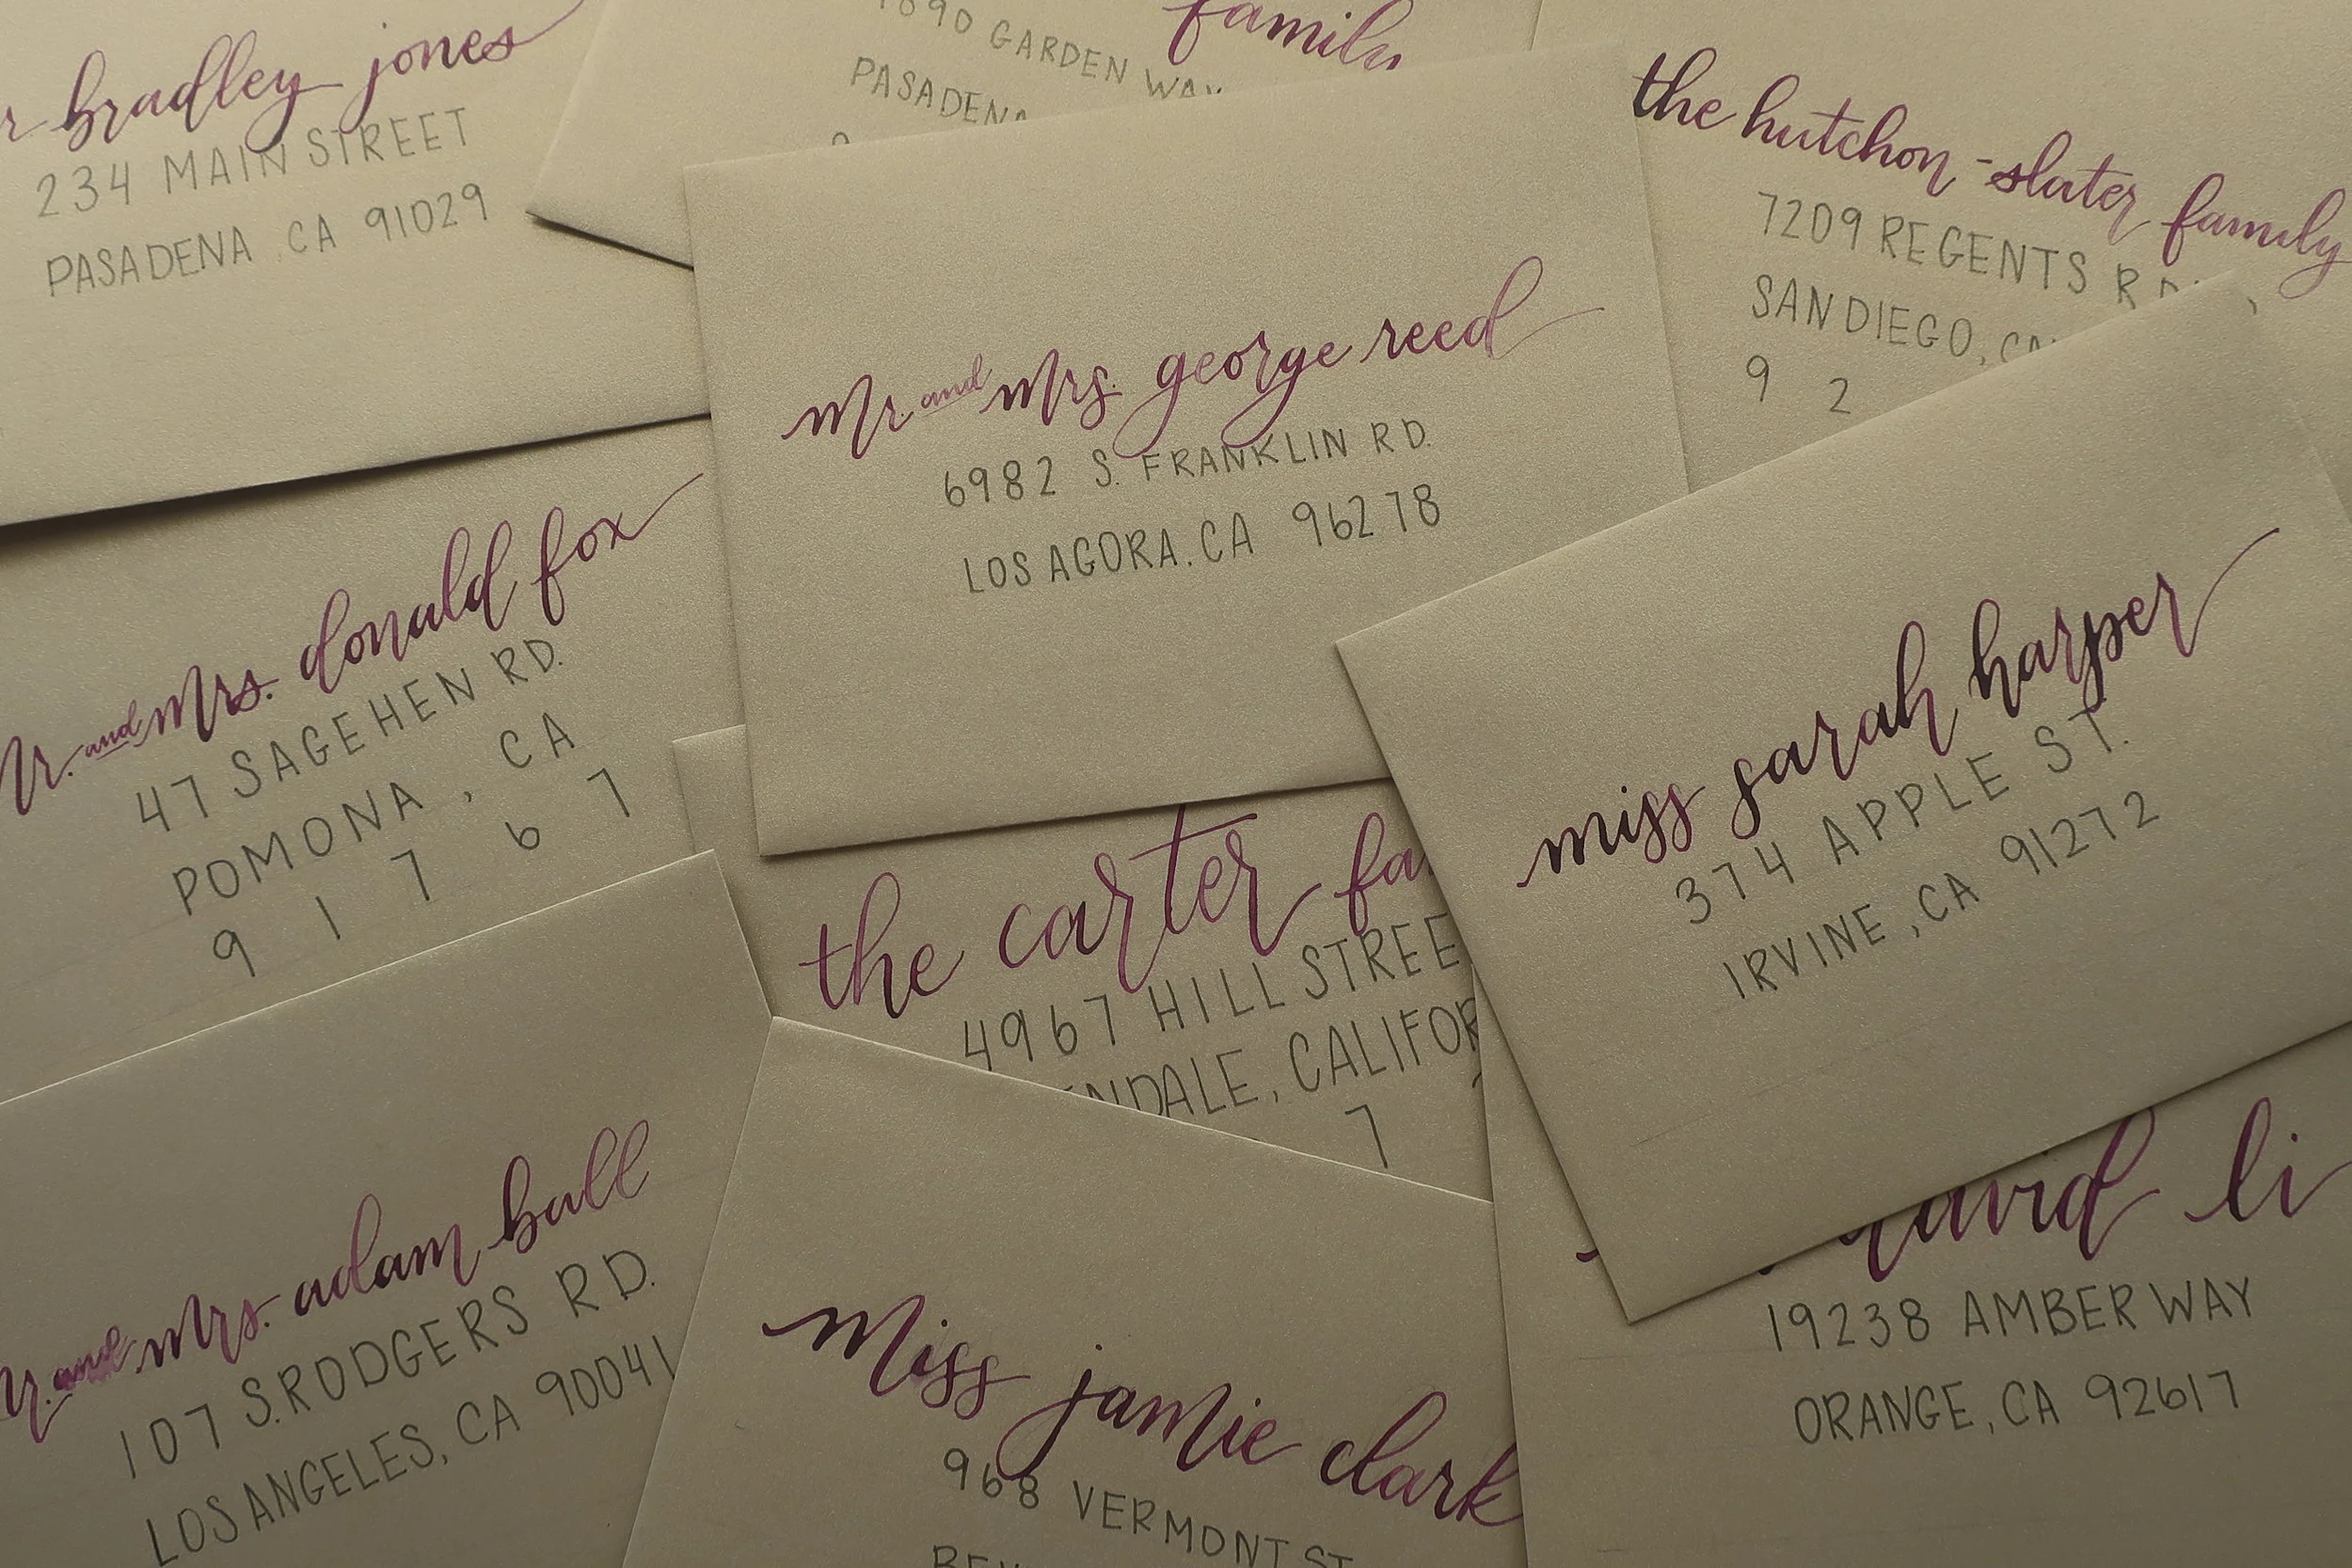 bradley jones
234 MAIN STREET
PASADENA, CA 91029
GARDEN WAY
PASADENA
the hutchon-slater family
7209 REGENTS
SAN DIEGO,
9 2
mr. and mrs. george reed
6982 S. FRANKLIN RD.
LOS AGORA, CA 96278
mrs. donald fox
47 SAGEHEN RD.
POMONA, CA
9 1 7 6 7
miss sarah harper
374 APPLE ST.
IRVINE, CA 91272
the carter
4967 HILL
7
and mrs. adam ball
107 S. RODGERS RD.
LOS ANGELES, CA 90041
miss jamie clark
968 VERMONT ST
david li
19238 AMBER WAY
ORANGE, CA 92617